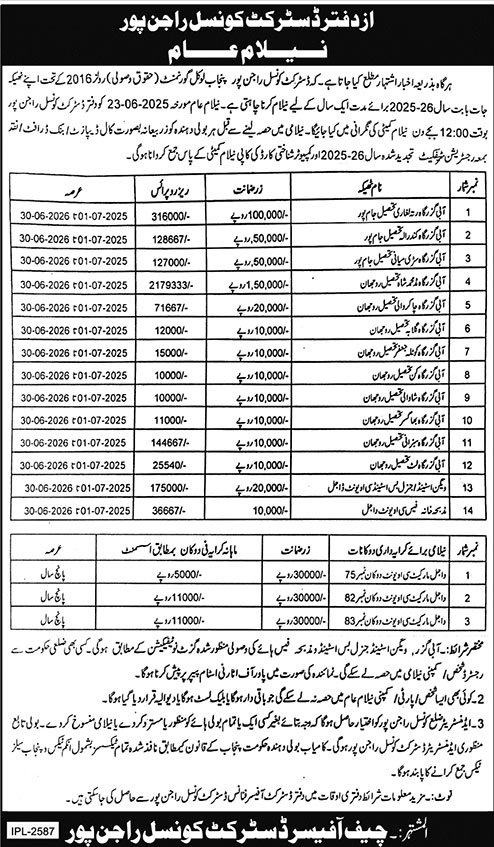 از دفتر ڈسٹرکٹ کونسل راجن پور
نیلام عام
ہر گاہ بذریعہ اخبار اشتہار مطلع کیا جاتا ہے۔ کہ ڈسٹرکٹ کونسل راجن پور پنجاب لوکل گورنمنٹ (حقوق وصولی) رولز 2016 کے تحت اپنے ٹھیکہ
جات بابت سال 26-2025 برائے مدت ایک سال کے لیے نیلام کرنا چاہتی ہے۔ نیلام عام مورخہ 2025-06-23 کو دفتر ڈسٹرکٹ کونسل راجن پور
بوقت 12:00 بجے دن نیلام کمیٹی کی نگرانی میں کیا جائیگا۔ نیلامی میں حصہ لینے سے قبل ہر بولی دہندہ کو زر بیعانہ بصورت کال ڈیپازٹ / بنک ڈرافٹ / نقد
بمعہ رجسٹریشن سرٹیفکیٹ تجدید شدہ سال 26-2025 اور کمپیوٹر شناختی کارڈ کی کاپی نیلام کمیٹی کے پاس جمع کروانا ہوگی۔
نمبر شمار نام ٹھیکہ زر ضمانت ریزرو پرائس عرصہ
1 آبی گزرگاہ رتہ لغاری تحصیل جام پور 100,000/- روپے 316000/- 01-07-2025 تا 30-06-2026
2 آبی گزرگاہ تحصیل جام پور 50,000/- روپے 128667/- 01-07-2025 تا 30-06-2026
3 آبی گزرگاہ تحصیل جام پور 50,000/- روپے 127000/- 01-07-2025 تا 30-06-2026
4 آبی گزرگاہ شاہ تحصیل روجھان 1,50,000/- روپے 2179333/- 01-07-2025 تا 30-06-2026
5 آبی گزرگاہ تحصیل روجھان 20,000/- روپے 71667/- 01-07-2025 تا 30-06-2026
6 آبی گزرگاہ تحصیل روجھان 10,000/- روپے 12000/- 01-07-2025 تا 30-06-2026
7 آبی گزرگاہ جعفر تحصیل روجھان 10,000/- روپے 15000/- 01-07-2025 تا 30-06-2026
8 آبی گزرگاہ کن تحصیل روجھان 10,000/- روپے 10000/- 01-07-2025 تا 30-06-2026
9 آبی گزرگاہ شاہ والی تحصیل روجھان 10,000/- روپے 10000/- 01-07-2025 تا 30-06-2026
10 آبی گزرگاہ بھاگسر تحصیل روجھان 10,000/- روپے 11000/- 01-07-2025 تا 30-06-2026
11 آبی گزرگاہ میرانی تحصیل روجھان 10,000/- روپے 144667/- 01-07-2025 تا 30-06-2026
12 آبی گزرگاہ تحصیل روجھان 10,000/- روپے 25540/- 01-07-2025 تا 30-06-2026
13 ویگن اسٹینڈ / جنرل بس اسٹینڈ سی او یونٹ داجل 20,000/- روپے 175000/- 01-07-2025 تا 30-06-2026
14 مذبحہ خانہ فیس سی او یونٹ داجل 10,000/- روپے 36667/- 01-07-2025 تا 30-06-2026
نمبر شمار نیلامی برائے کرایہ داری دوکانات زر ضمانت ماہانہ کرایہ فی دوکان بمطابق اسسمنٹ عرصہ
1 داجل مارکیٹ سی او یونٹ دوکان نمبر 75 30000/- روپے 5000/- روپے پانچ سال
2 داجل مارکیٹ سی او یونٹ دوکان نمبر 82 30000/- روپے 11000/- روپے پانچ سال
3 داجل مارکیٹ سی او یونٹ دوکان نمبر 83 30000/- روپے 11000/- روپے پانچ سال
مختصر شرائط:۔ آبی گزر، ویگن اسٹینڈ جنرل بس اسٹینڈ و مذبحہ فیس ہائے کی وصولی منظور شدہ گزٹ نوٹیفکیشن کے مطابق ہوگی۔ کسی بھی ضلعی حکومت سے
رجسٹرڈ شخص / کمپنی نیلامی میں حصہ لے سکے گی۔ نمائندہ کی صورت میں پاور آف اٹارنی اسٹام پیپر پر پیش کرنا ہوگا۔
2۔ کوئی بھی ایسا شخص / پارٹی / کمپنی نیلام عام میں حصہ نہ لے سکے گی جو باقی دار ہوگا یا بلیک لسٹ ہوگا یا دیوالیہ قرار دیا گیا ہوگا۔
3۔ ایڈمنسٹریٹر ضلع کونسل راجن پور کو اختیار حاصل ہوگا کہ وجہ بتائے بغیر کسی ایک یا تمام بولی ہائے کو منظور یا مسترد کر دے یا نیلامی منسوخ کر دے۔ بولی تابع
منظوری ایڈمنسٹریٹر ڈسٹرکٹ کونسل راجن پور ہوگی۔ کامیاب بولی دہندہ حکومت پنجاب کے قانون کیمطابق نافذ شدہ تمام ٹیکسز بشمول انکم ٹیکس و پنجاب سیلز
ٹیکس جمع کرانے کا پابند ہوگا۔
نوٹ:۔ مزید معلومات شرائط دفتری اوقات میں دفتر ڈسٹرکٹ آفیسر فنانس ڈسٹرکٹ کونسل راجن پور سے حاصل کی جا سکتی ہیں۔
المشتہر:۔ چیف آفیسر ڈسٹرکٹ کونسل راجن پور
IPL-2587